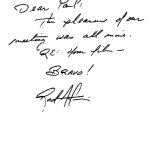 Dear Paul:
The pleasure of our
meeting was all mine.
Re: Your film –
BRAVO!